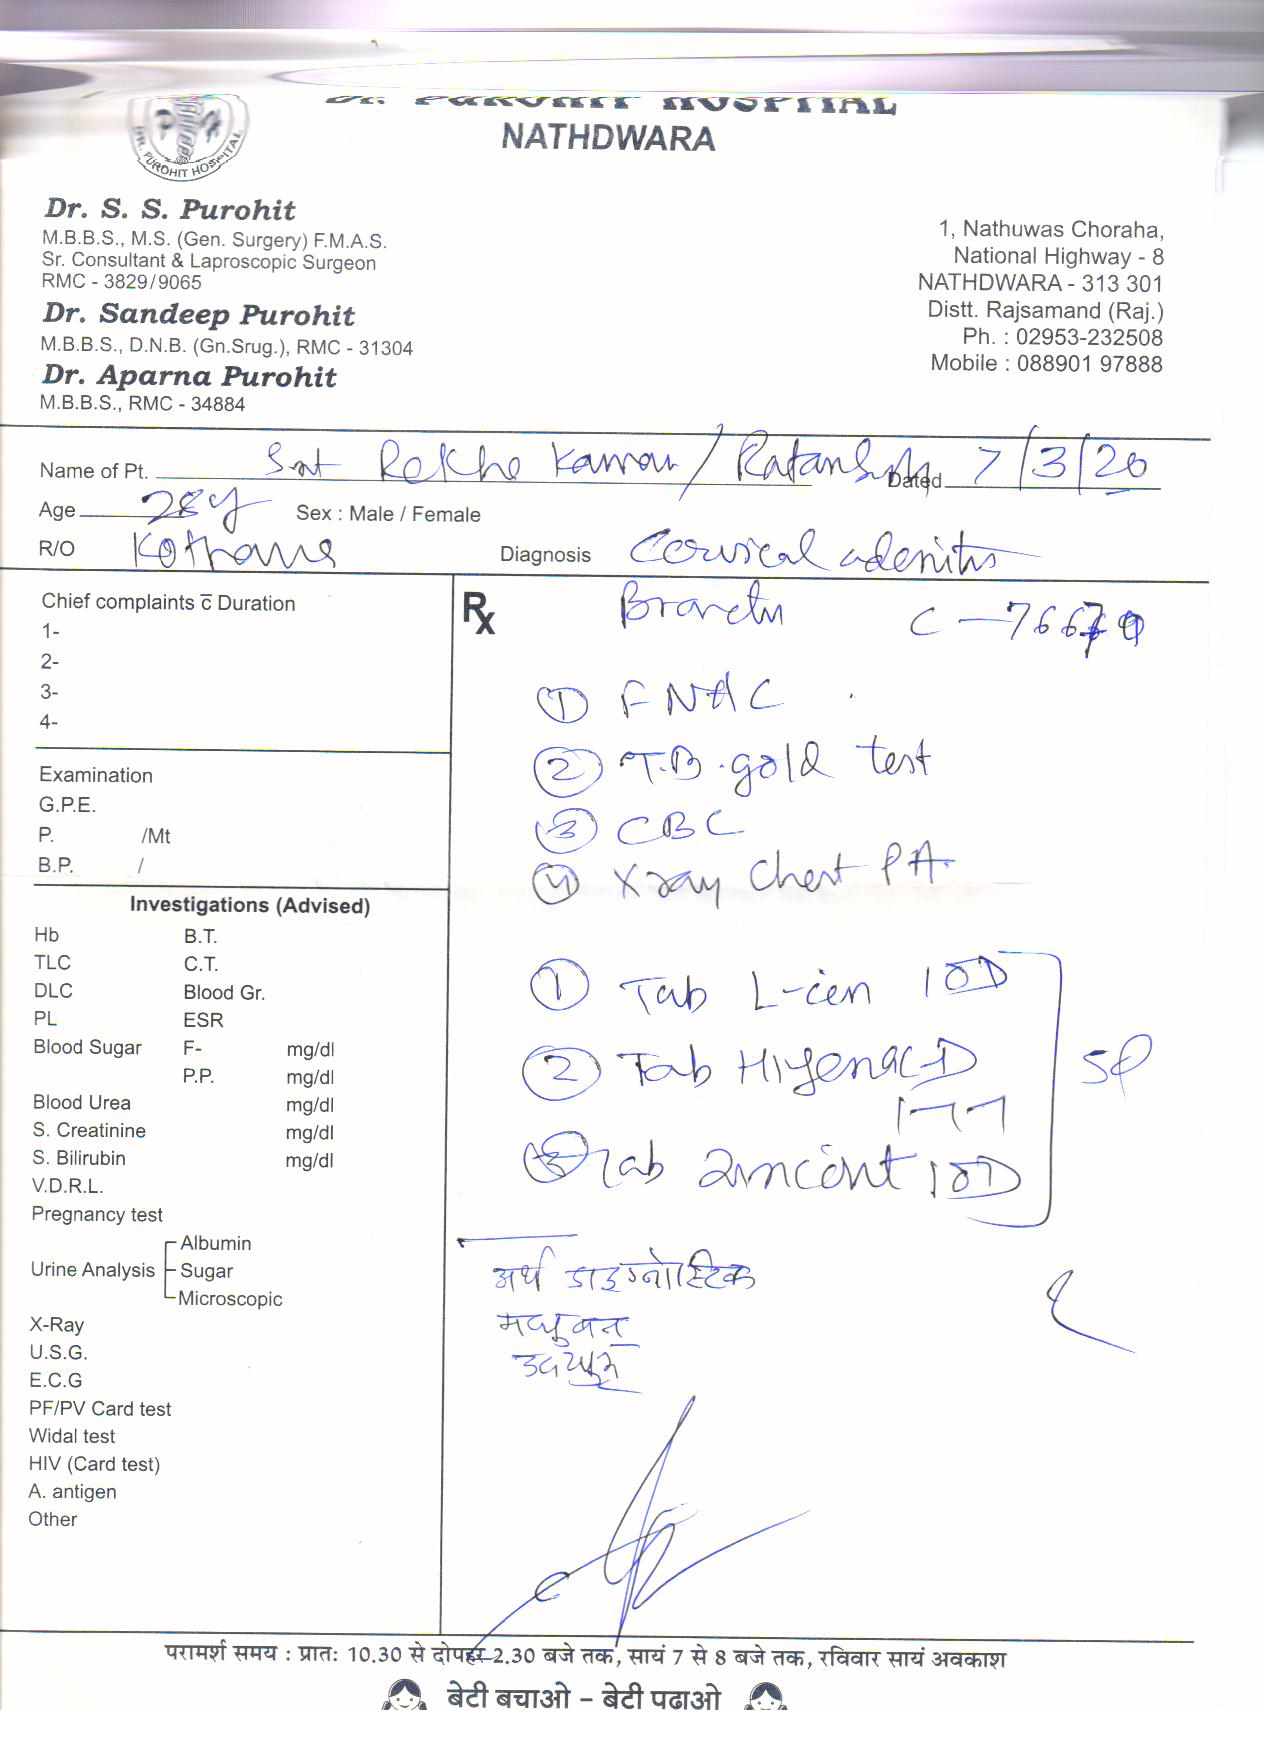 DR. PUROHIT HOSPITAL
NATHDWARA
DR. PUROHIT HOSPITAL
Dr. S. S. Purohit
M.B.B.S., M.S. (Gen. Surgery) F.M.A.S.
Sr. Consultant & Laproscopic Surgeon
RMC - 3829/9065
Dr. Sandeep Purohit
M.B.B.S., D.N.B. (Gn.Srug.), RMC - 31304
Dr. Aparna Purohit
M.B.B.S., RMC - 34884
1, Nathuwas Choraha,
National Highway - 8
NATHDWARA - 313 301
Distt. Rajsamand (Raj.)
Ph. : 02953-232508
Mobile : 088901 97888
Name of Pt. Smt Rekha / Dated 7/3/20
Age 28y Sex : Male / Female
R/O Diagnosis Cervical adenitis
Chief complaints c̅ Duration
1-
2-
3-
4-
Examination
G.P.E.
P. /Mt
B.P. /
Investigations (Advised)
Hb B.T.
TLC C.T.
DLC Blood Gr.
PL ESR
Blood Sugar F- mg/dl
P.P. mg/dl
Blood Urea mg/dl
S. Creatinine mg/dl
S. Bilirubin mg/dl
V.D.R.L.
Pregnancy test
Urine Analysis Albumin
Sugar
Microscopic
X-Ray
U.S.G.
E.C.G
PF/PV Card test
Widal test
HIV (Card test)
A. antigen
Other
Rx
① FNAC
② T.B. gold test
③ CBC
④ Xray Chest PA
① Tab L-cin 1 OD
② Tab Hifenac-D
③ Tab 1 OD
अर्थ डाइग्नोस्टिक
मधुबन
उदयपुर
परामर्श समय : प्रातः 10.30 से दोपहर 2.30 बजे तक, सायं 7 से 8 बजे तक, रविवार सायं अवकाश
बेटी बचाओ - बेटी पढाओ